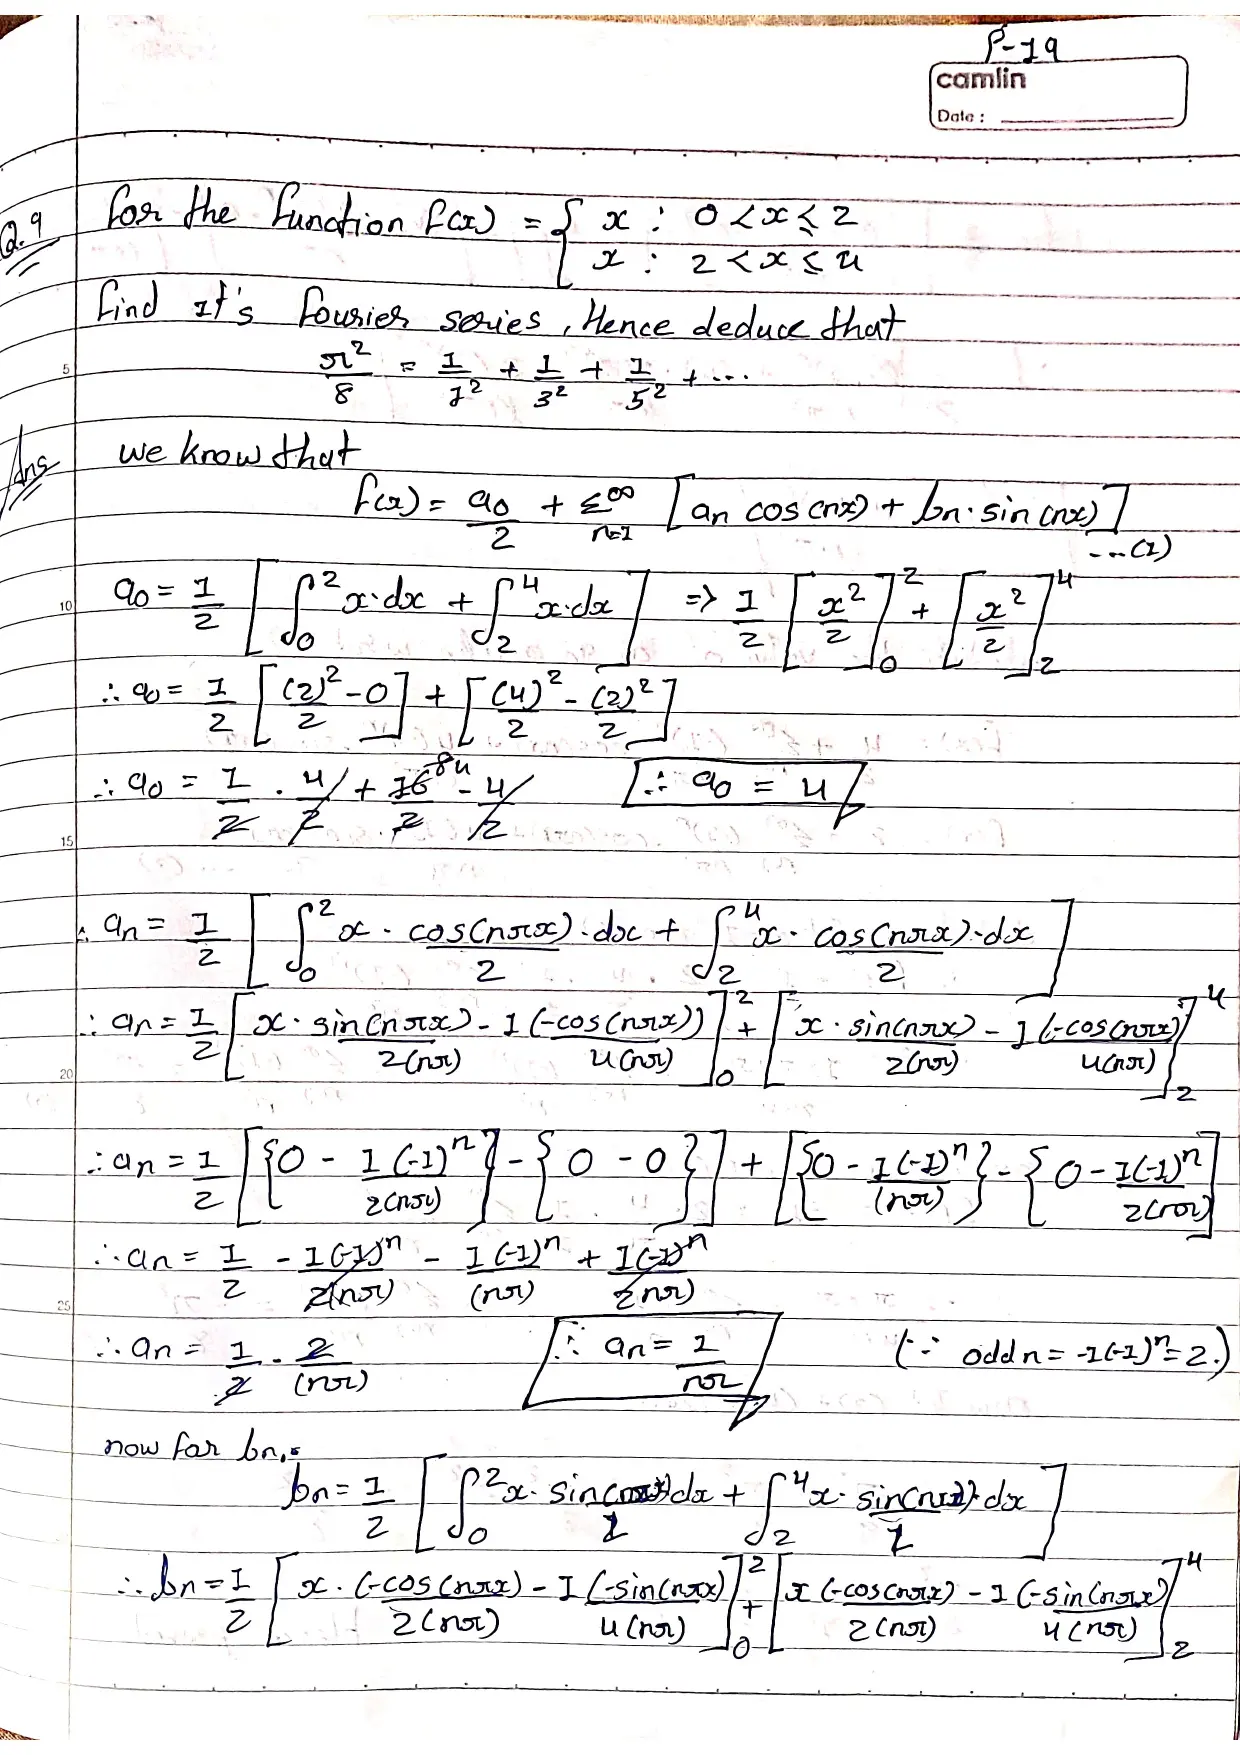 P-19
camlin
Date :
Q.9 for the function f(x) = { x : 0 < x ≤ 2
x : 2 < x ≤ 4
find It's fourier series, Hence deduce that
5 π²/8 = 1/1² + 1/3² + 1/5² + ...
Ans we know that
f(x) = a0/2 + Σ^∞ n=1 [an cos(nx) + bn · sin(nx)] ...(1)
10 a0 = 1/2 [∫₀² x·dx + ∫₂⁴ x·dx] => 1/2 [x²/2]₀² + [x²/2]₂⁴
∴ a0 = 1/2 [(2)²/2 - 0] + [(4)²/2 - (2)²/2]
∴ a0 = 1/2 · 4/2 + 16/2 - 4/2 ∴ a0 = 4
15
∴ an = 1/2 [∫₀² x · cos(nπx)/2 · dx + ∫₂⁴ x · cos(nπx)/2 · dx]
∴ an = 1/2 [x · sin(nπx)/2(nπ) - 1(-cos(nπx))/4(nπ)]₀² + [x · sin(nπx)/2(nπ) - 1(-cos(nπx))/4(nπ)]₂⁴
20
∴ an = 1/2 [{0 - 1(-1)ⁿ/2(nπ)} - {0 - 0}] + [{0 - 1(-1)ⁿ/(nπ)} - {0 - 1(-1)ⁿ/2(nπ)]
∴ an = 1/2 - 1(-1)ⁿ/2(nπ) - 1(-1)ⁿ/(nπ) + 1(-1)ⁿ/2nπ)
25
∴ an = 1/2 · 2/(nπ) ∴ an = 1/nπ (∵ odd n = -1(-1)ⁿ = 2.)
now for bn,
bn = 1/2 [∫₀² x · sin(nπx)/2 dx + ∫₂⁴ x · sin(nπx)/2 · dx]
∴ bn = 1/2 [x · (-cos(nπx)/2(nπ) - 1(-sin(nπx)/4(nπ)]₀² + [x (-cos(nπx)/2(nπ) - 1(-sin(nπx)/4(nπ)]₂⁴